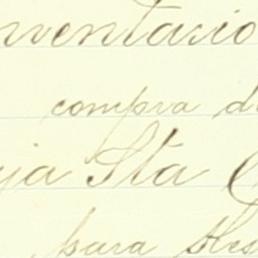 nventario
compra d
ja Sta
para